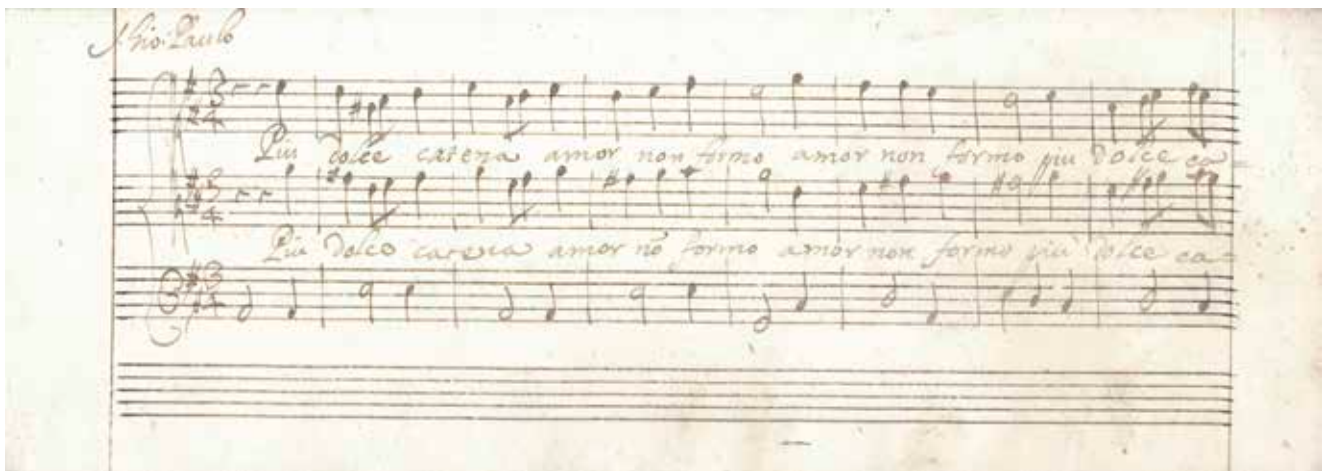 S. Gio: Paulo
3 4
Piu dolce catena amor non formo amor non formo piu dolce ca-
3 4
Piu dolce catena amor nõ formo amor non formo piu dolce ca-
3 4